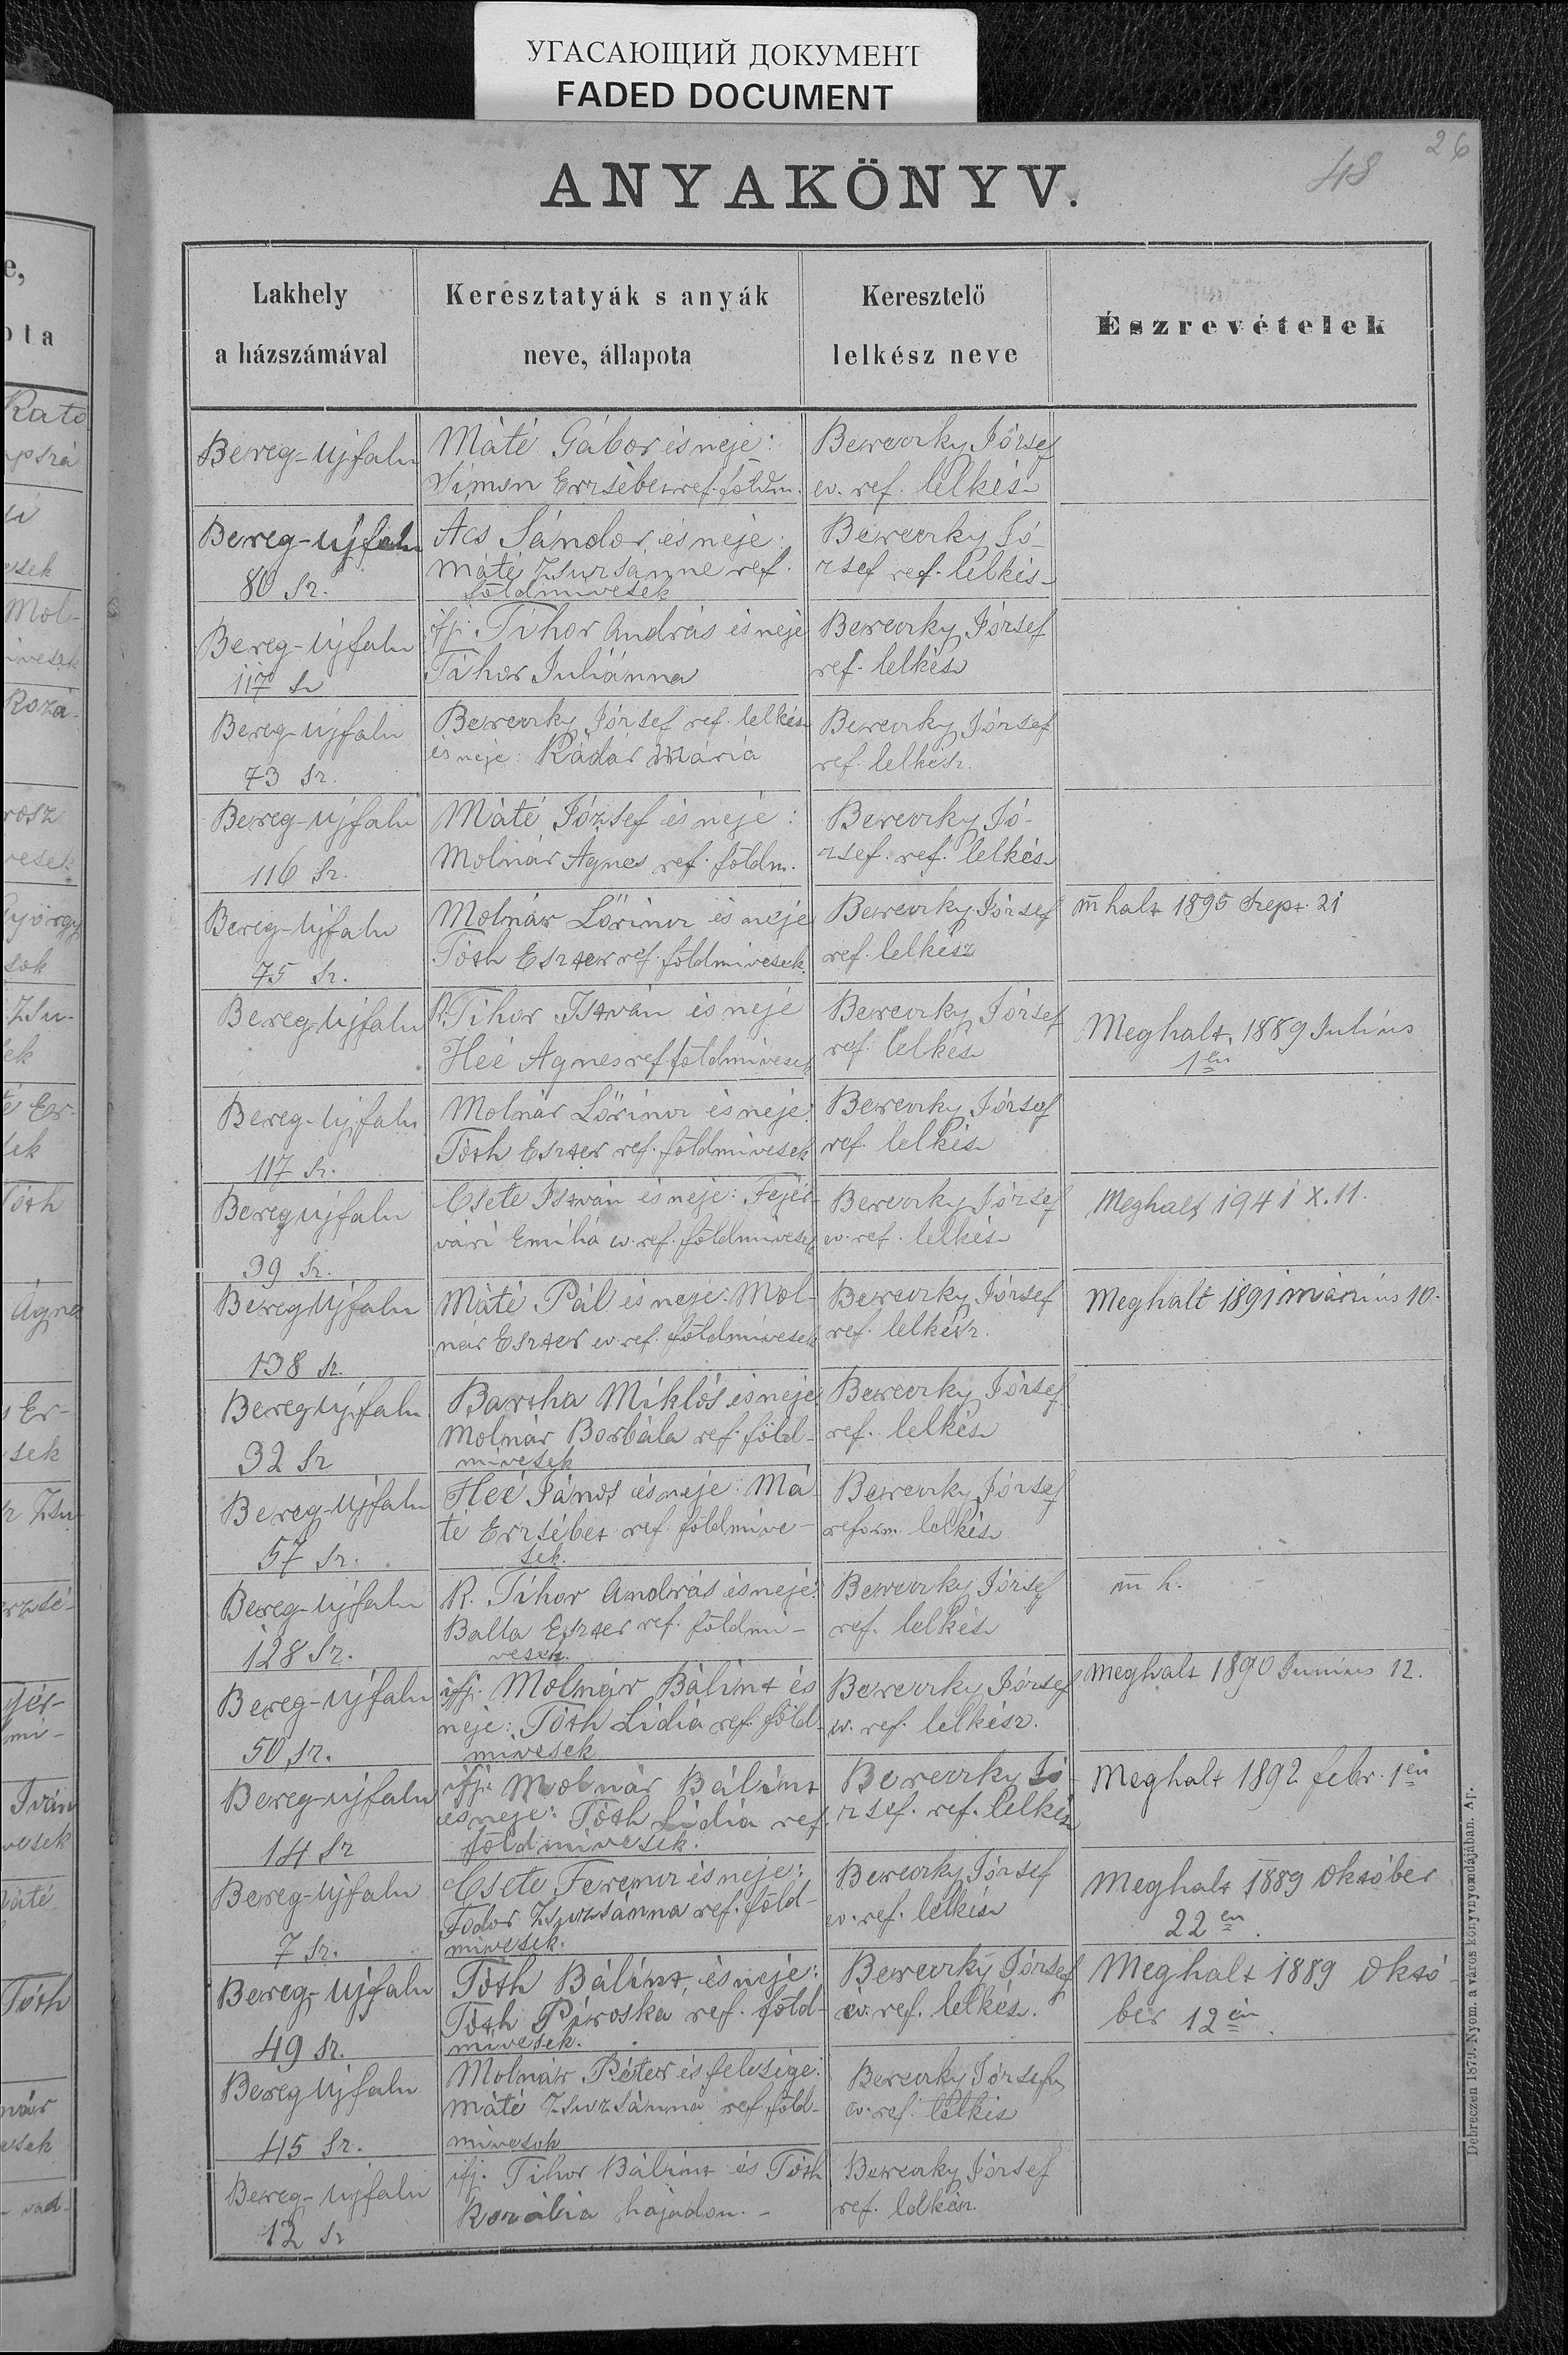 УГАСАЮЩИЙ ДОКУМЕНТ
FADED DOCUMENT
26
48
ANYAKÖNYV.
Lakhely
a házszámával
Keresztatyák s anyák
neve, állapota
Keresztelő
lelkész neve
Észrevételek
Bereg-Ujfalu
Máté Gábor és neje:
Simon Erzsébet ref. földm.
Bereczky József
ev. ref. lelkész
Bereg-Ujfalu
80 sz.
Acs Sándor, és neje:
Máté Zsuzsánne ref.
földmivesek
Bereczky Jó-
zsef ref. lelkész
Bereg-Ujfalu
117 sz
ifj. Tihor András és neje
Tihor Juliánna
Bereczky József
ref. lelkész
Bereg-Ujfalu
73 sz.
Bereczky József ref. lelkész
és neje: Rádár Mária
Bereczky József
ref. lelkész.
Bereg-Ujfalu
116 sz.
Máté József és neje:
Molnár Ágnes ref. földm.
Bereczky Jó-
zsef. ref. lelkész
Bereg-Ujfalu
75 sz.
Molnár Lőrincz és neje
Tóth Eszter ref. földmivesek.
Bereczky József
ref. lelkész
m halt 1895 Szept. 21
Bereg-Ujfalu
R. Tihor István és neje
Heé Agnes ref. földmivesek
Bereczky József
ref. lelkész
Meghalt, 1889 Julius
1én
Bereg-Ujfalu
117 sz.
Molnár Lőrincz és neje:
Tóth Eszter ref. földmivesek
Bereczky József
ref. lelkész
Bereg Ujfalu
39 sz.
Csete István és neje: Fejér-
vári Emilia ev. ref. földmivesek
Bereczky József
ev. ref. lelkész
Meghalt 1941 X. 11.
Bereg Ujfalu
138 sz.
Máté Pál és neje: Mol-
nár Eszter ev. ref. földmivesek
Bereczky József
ref. lelkész.
Meghalt 1891 márczius 10.
Bereg Ujfalu
32 sz
Bartha Miklós és neje
Molnár Borbála ref. föld-
mivesek
Bereczky József
ref. lelkész
Bereg-Ujfalu
57 sz.
Heé János és neje: Má-
té Erzsébet ref. földmive-
sek.
Bereczky József
reform. lelkész
Bereg-Ujfalu
128 sz.
R. Tihor András és neje:
Balla Eszter ref. földmi-
vesek.
Bereczky József
ref. lelkész
m h.
Bereg-Ujfalu
50 sz.
ifj. Molnár Bálint és
neje: Tóth Lidia ref. föld-
mivesek
Bereczky József
ev. ref. lelkész.
Meghalt 1890 Junius 12.
Bereg-Ujfalu
14 sz
ifj. Molnár Bálint
és neje: Tóth Lidia ref.
földmivesek.
Bereczky Jó-
zsef. ref. lelkész
Meghalt 1892 febr. 1én
Bereg-Ujfalu
7 sz.
Csete Ferencz és neje:
Fodor Zsuzsánna ref. föld-
mivesek.
Bereczky József
ev. ref. lelkész
Meghalt 1889 Október
22 én.
Bereg-Ujfalu
49 sz.
Tóth Bálint, és neje:
Tóth Piroska ref. föld-
mivesek.
Bereczky József
ev. ref. lelkész.
Meghalt 1889 Októ-
ber 12 én.
Bereg Ujfalu
45 sz.
Molnár Péter és felesége:
Máté Zsuzsánna ref. föld-
mivesek
Bereczky József
ev. ref. lelkész
Bereg-Ujfalu
12 sz
ifj. Tihor Bálint és Tóth
Rozália hajadon. -
Bereczky József
ref. lelkész.
Debreczen 1879. Nyom. a város könyvnyomdájában. Ap.